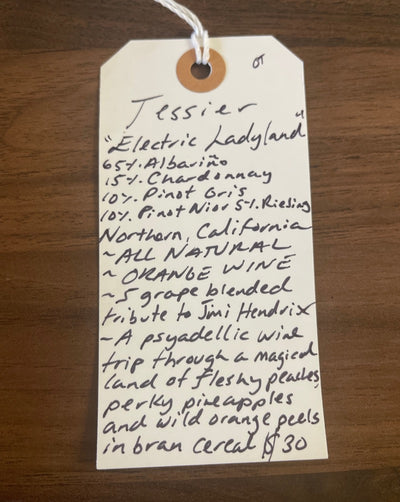 OT
Tessier
"Electric Ladyland"
65%. Albariño
15%. Chardonnay
10%. Pinot Gris
10%. Pinot Nior 5%. Riesling
Northorn, California
~ ALL NATURAL
~ ORANGE WINE
~ 5 grape blended
tribute to Jimi Hendrix
~ A psyadellic wine
trip through a magical
land of fleshy peaches,
perky pineapples
and wild orange peels
in bran cereal $30